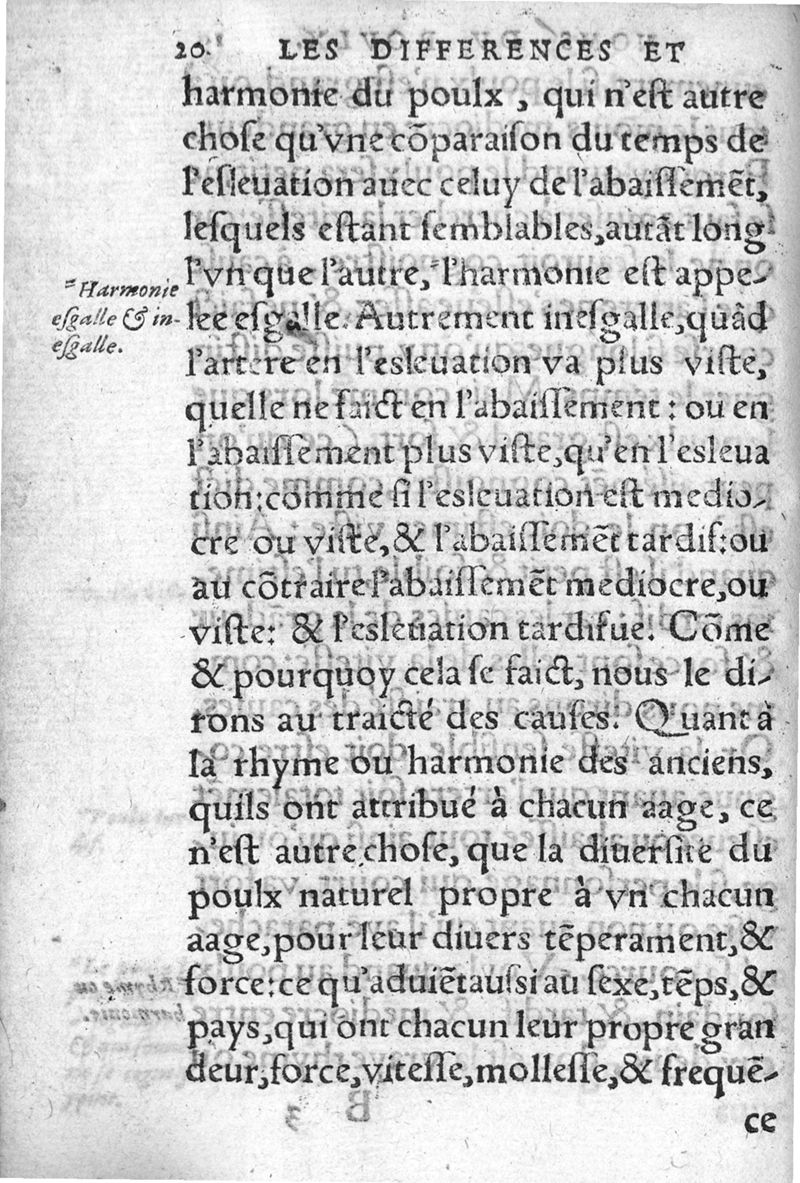 20 LES DIFFERENCES ET
harmonie du poulx, qui n'eſt autre
choſe qu'vne cõparaiſon du temps de
l'eſleuation auec celuy de l'abaiſſemẽt,
leſquels eſtant ſemblables, autãt long
l'vn que l'autre, "l'harmonie eſt appe-
lee eſgalle. Autrement ineſgalle, quãd
l'artere en l'esleuation va plus viſte,
quelle ne faict en l'abaiſſement: ou en
l'abaiſſement plus viſte, qu'en l'esleua
tion: comme ſi l'esleuation eſt medio-
cre ou viſte, & l'abaiſſemẽt tardif: ou
au cõtraire l'abaiſſemẽt mediocre, ou
viſte: & l'esleuation tardifue. Cõme
& pourquoy cela ſe faict, nous le di-
rons au traicté des cauſes. Quant à
la rhyme ou harmonie des anciens,
quils ont attribué à chacun aage, ce
n'eſt autre choſe, que la diuerſité du
poulx naturel propre à vn chacun
aage, pour leur diuers tẽperament, &
force: ce qu'aduiẽt auſsi au ſexe, tẽps, &
pays, qui ont chacun leur propre gran
deur, force, viteſſe, molleſſe, & frequẽ-
ce
"Harmonie
eſgalle & in-
eſgalle.